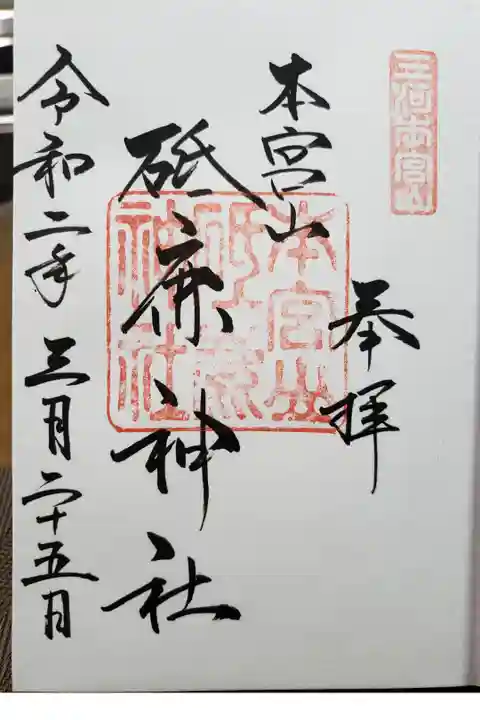 三河本宮山
奉拝
本宮山
砥鹿神社
本宮山
砥鹿
神社
令和二年三月二十五日